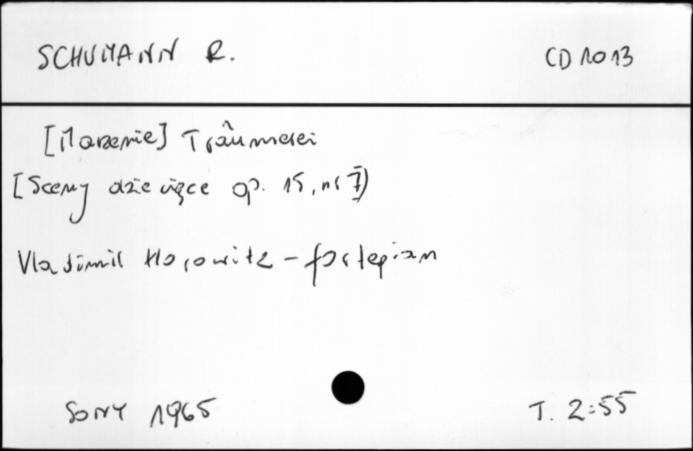 SCHUMANN R. CD 1013
[Marzenie] Träumerei
[Sceny dziecięce op. 15, nr 7]
Vladimir Horowitz - fortepian
SONY 1965 T. 2:55